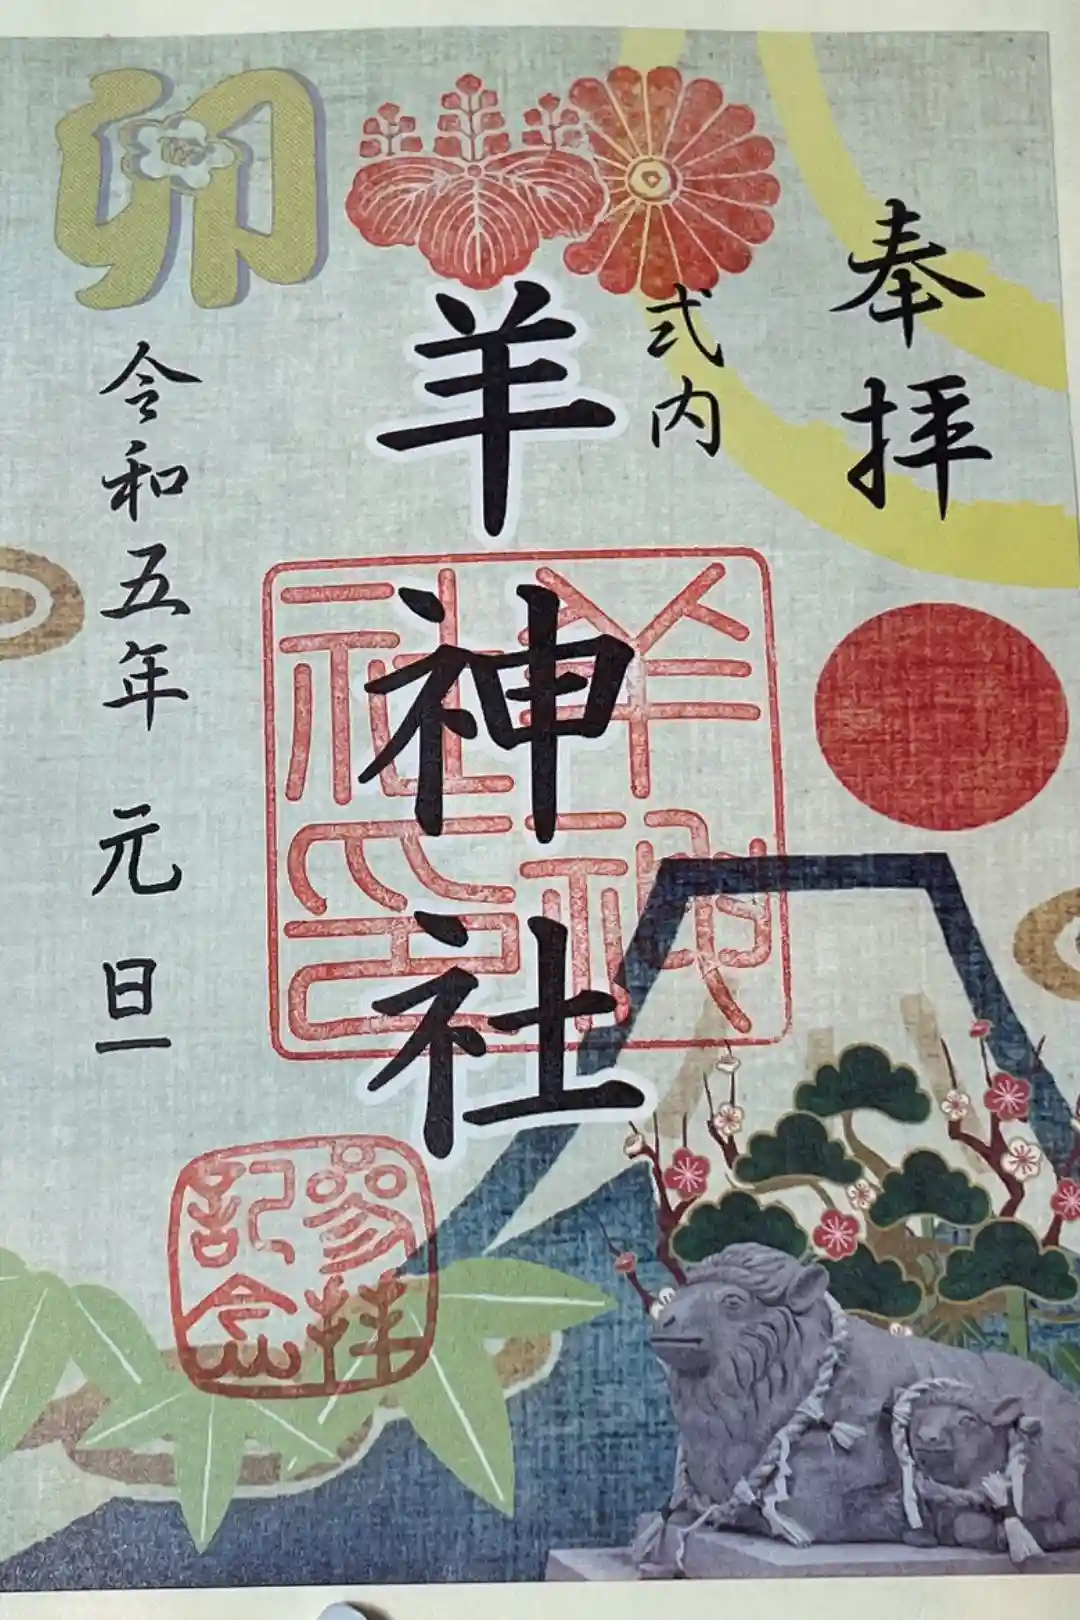 奉拝
式内
羊神社
羊神社印
参拝記念
卯
令和五年 元旦